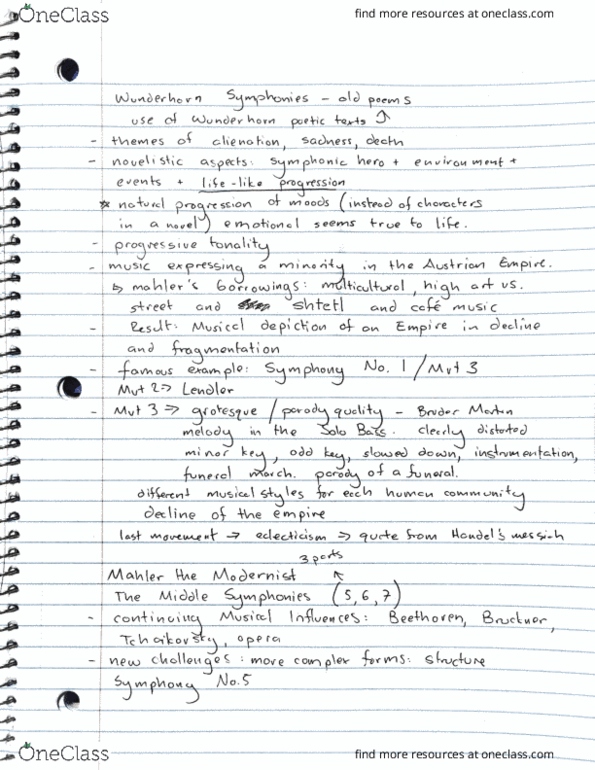 OneClass
find more resources at oneclass.com
Wunderhorn Symphonies - old poems
use of Wunderhorn poetic texts ↑
- themes of alienation, sadness, death
- novelistic aspects: symphonic hero + environment +
events + life-like progression
* natural progression of moods (instead of characters
in a novel) emotional seems true to life.
- progressive tonality
- music expressing a minority in the Austrian Empire.
↳ mahler's borrowings: multicultural, high art vs.
street and shtetl and café music
- Result: Musical depiction of an Empire in decline
and fragmentation
- famous example: Symphony No. 1 / Mvt 3
Mvt 2 => Lendler
- Mvt 3 => grotesque / parody quality - Bruder Martin
melody in the Solo Bass. clearly distorted
minor key, odd key, slowed down, instrumentation,
funeral march. parody of a funeral.
different musical styles for each human community
decline of the empire
last movement → eclecticism => quote from Handel's messiah
3 parts
Mahler the Modernist
The Middle Symphonies (5, 6, 7)
- continuing Musical Influences: Beethoven, Bruckner,
Tchaikovsky, opera
- new challenges: more complex forms: structure
Symphony No. 5
OneClass
find more resources at oneclass.com